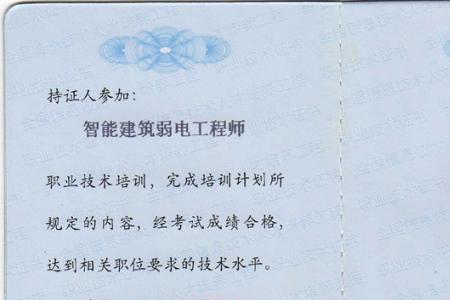 持证人参加：
智能建筑弱电工程师
职业技术培训，完成培训计划所
规定的内容，经考试成绩合格，
达到相关职位要求的技术水平。